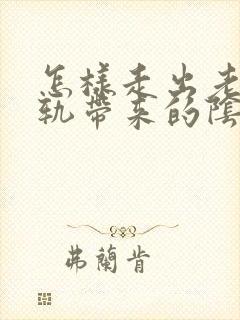 怎樣走出老
軌帶來的陰
弗蘭肯